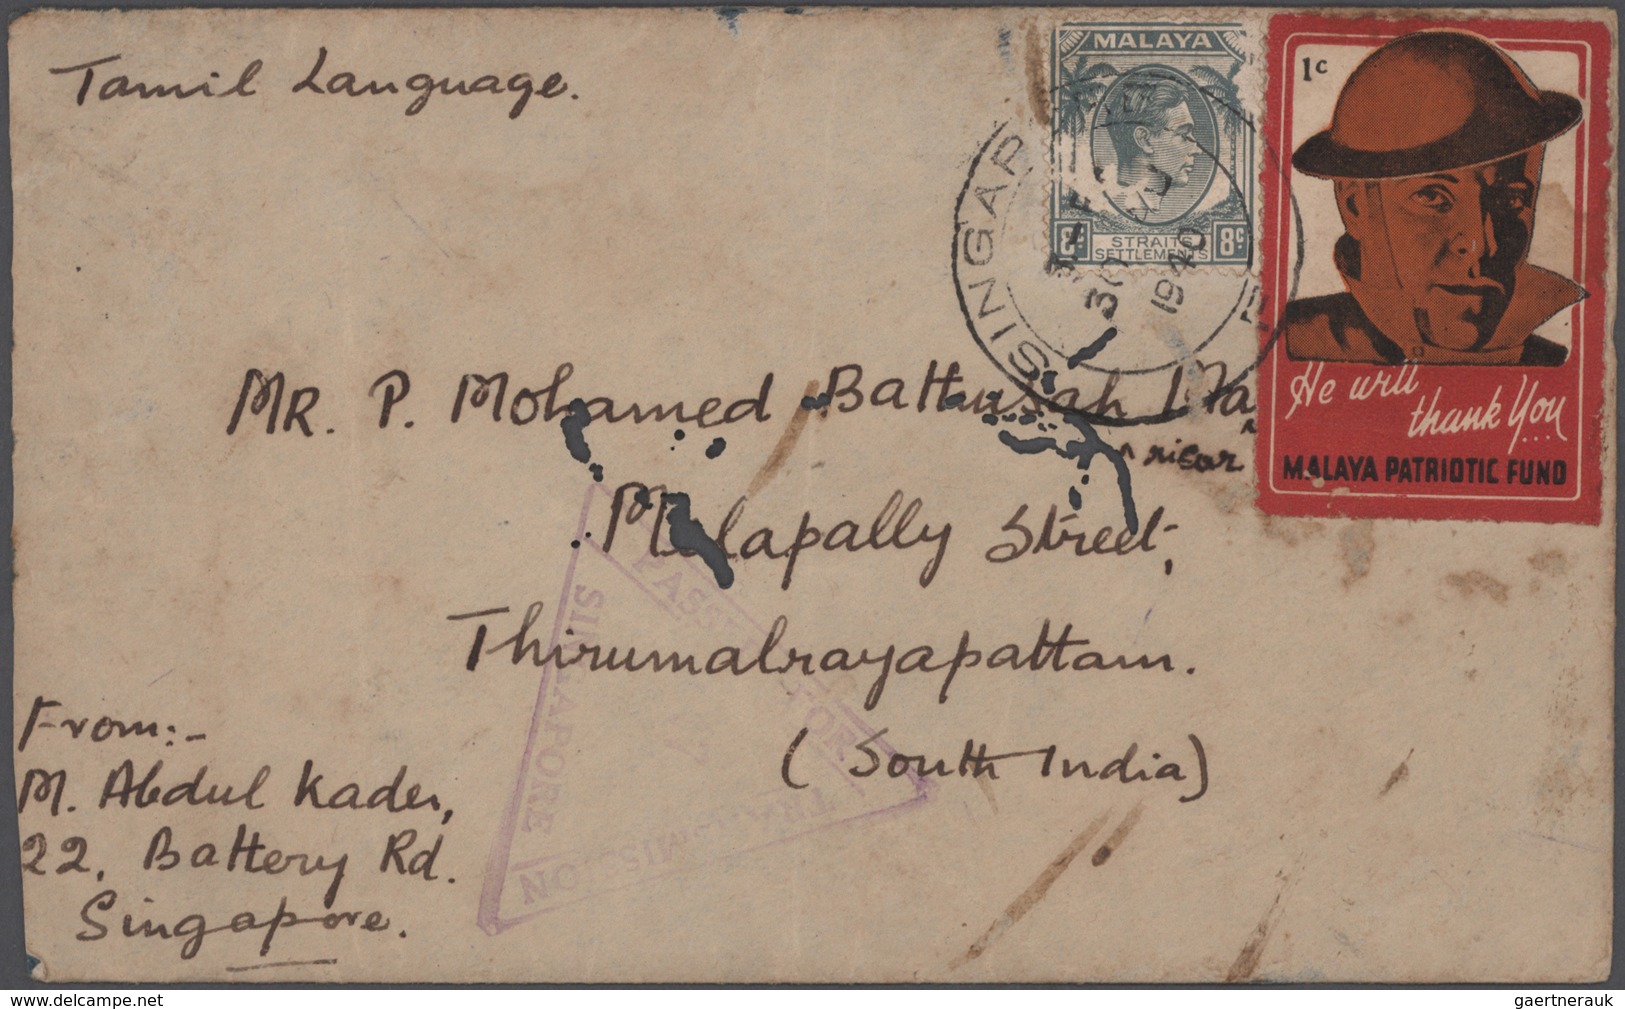 Tamil Language.
MALAYA
8c STRAITS SETTLEMENTS 8c
SINGAPORE
30
1940
1c
He will
thank You...
MALAYA PATRIOTIC FUND
MR. P. Mohamed Battusah Ma
ricar
Melapally Street,
Thirumalrayapattam.
(South India)
From:-
M. Abdul Kader,
22, Battery Rd.
Singapore.
PASSED FOR
TRANSMISSION
SINGAPORE
Bilder-Nr.: 1107162
gaertnerauk © www.delcampe.net